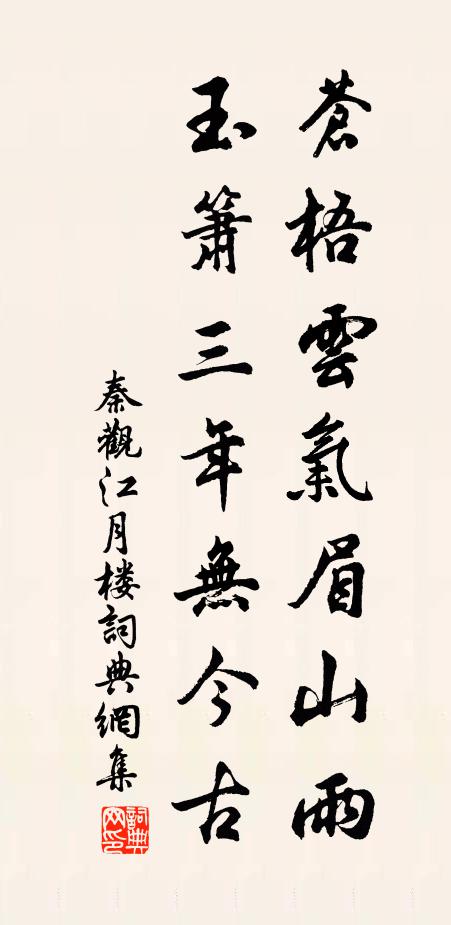 蒼梧雲氣眉山雨
玉簫三年無今古
秦觀江月楼詞典網集
詞典網印